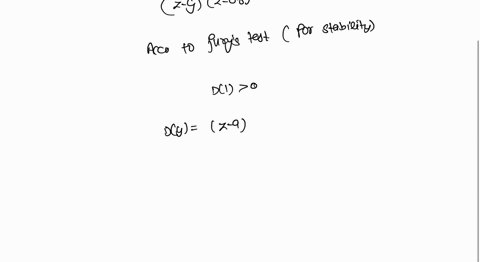 Acco to jury's test ( for stability)
D(1) > 0
D(y) = (z-a)